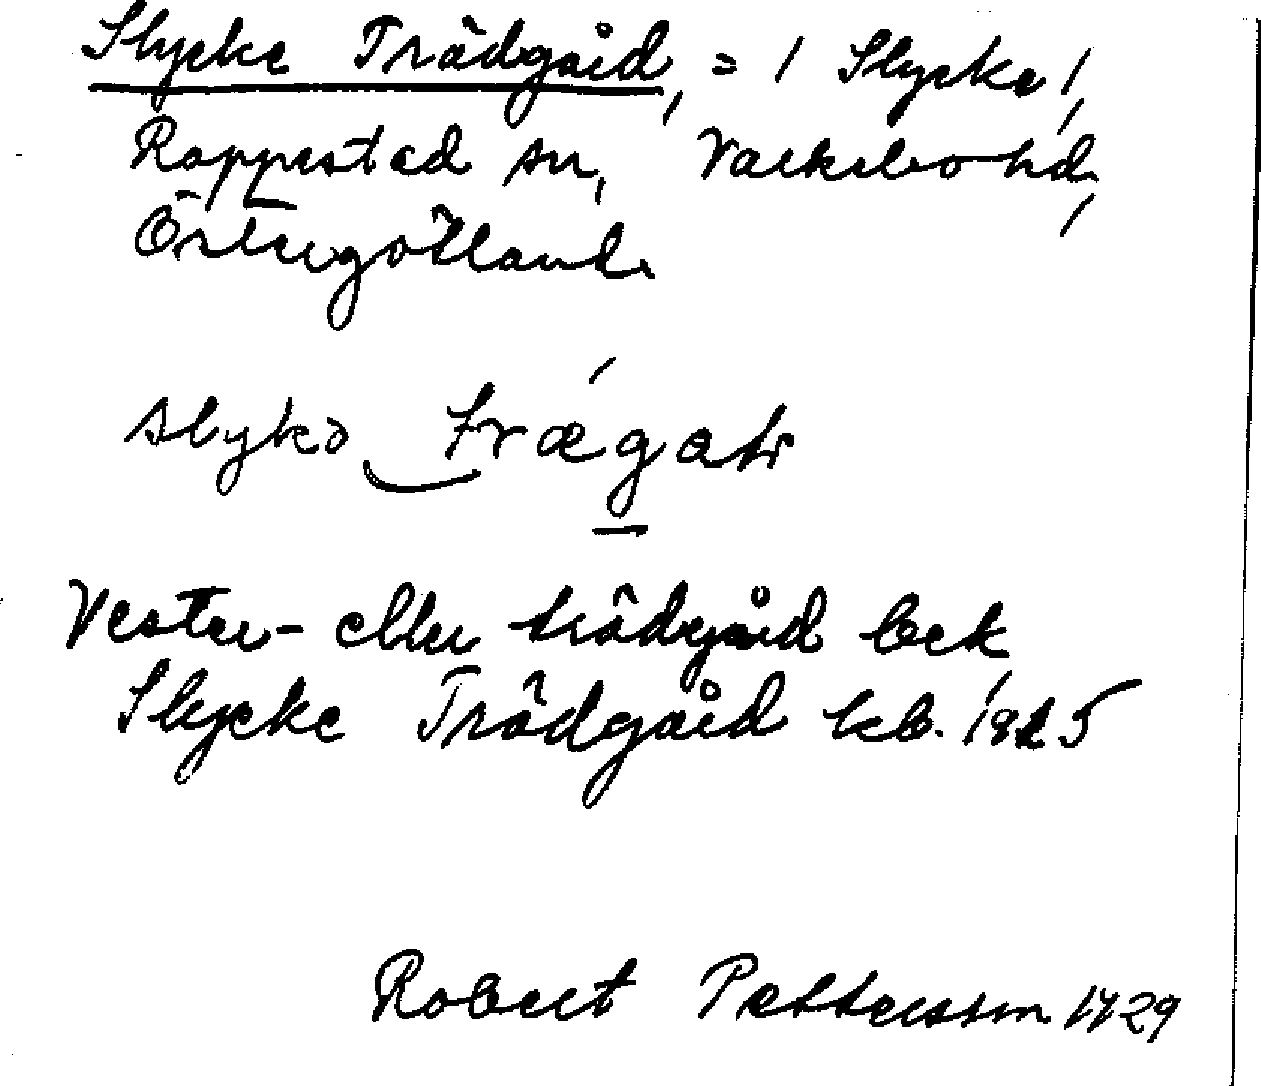 Slycke Trädgård, = / Slycke /,
Rappestad sn, Valkebo hd,
Östergötland.
slykə trǽgaɳ
Vester- eller trädgård
Slycke Trädgård kb. 1825
Robert Pettersson 1929